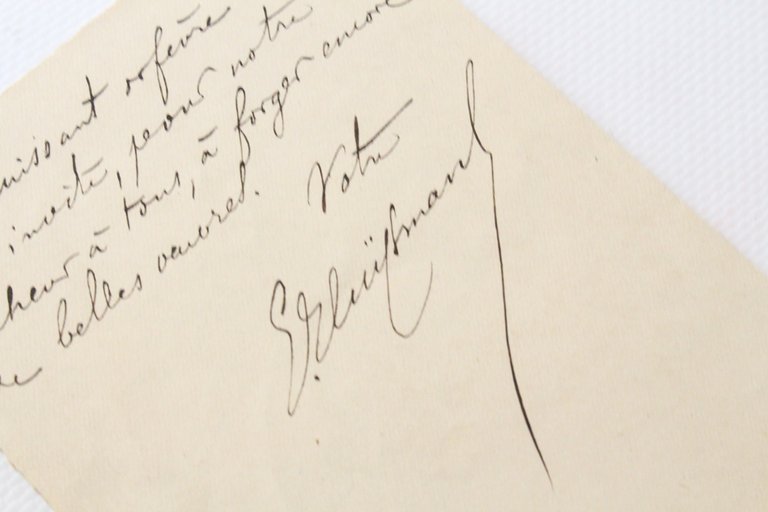 uissant orfèvre
invite, pour notre
heur à tous, à forger encore
de belles œuvres. Votre
G. Huÿsmans